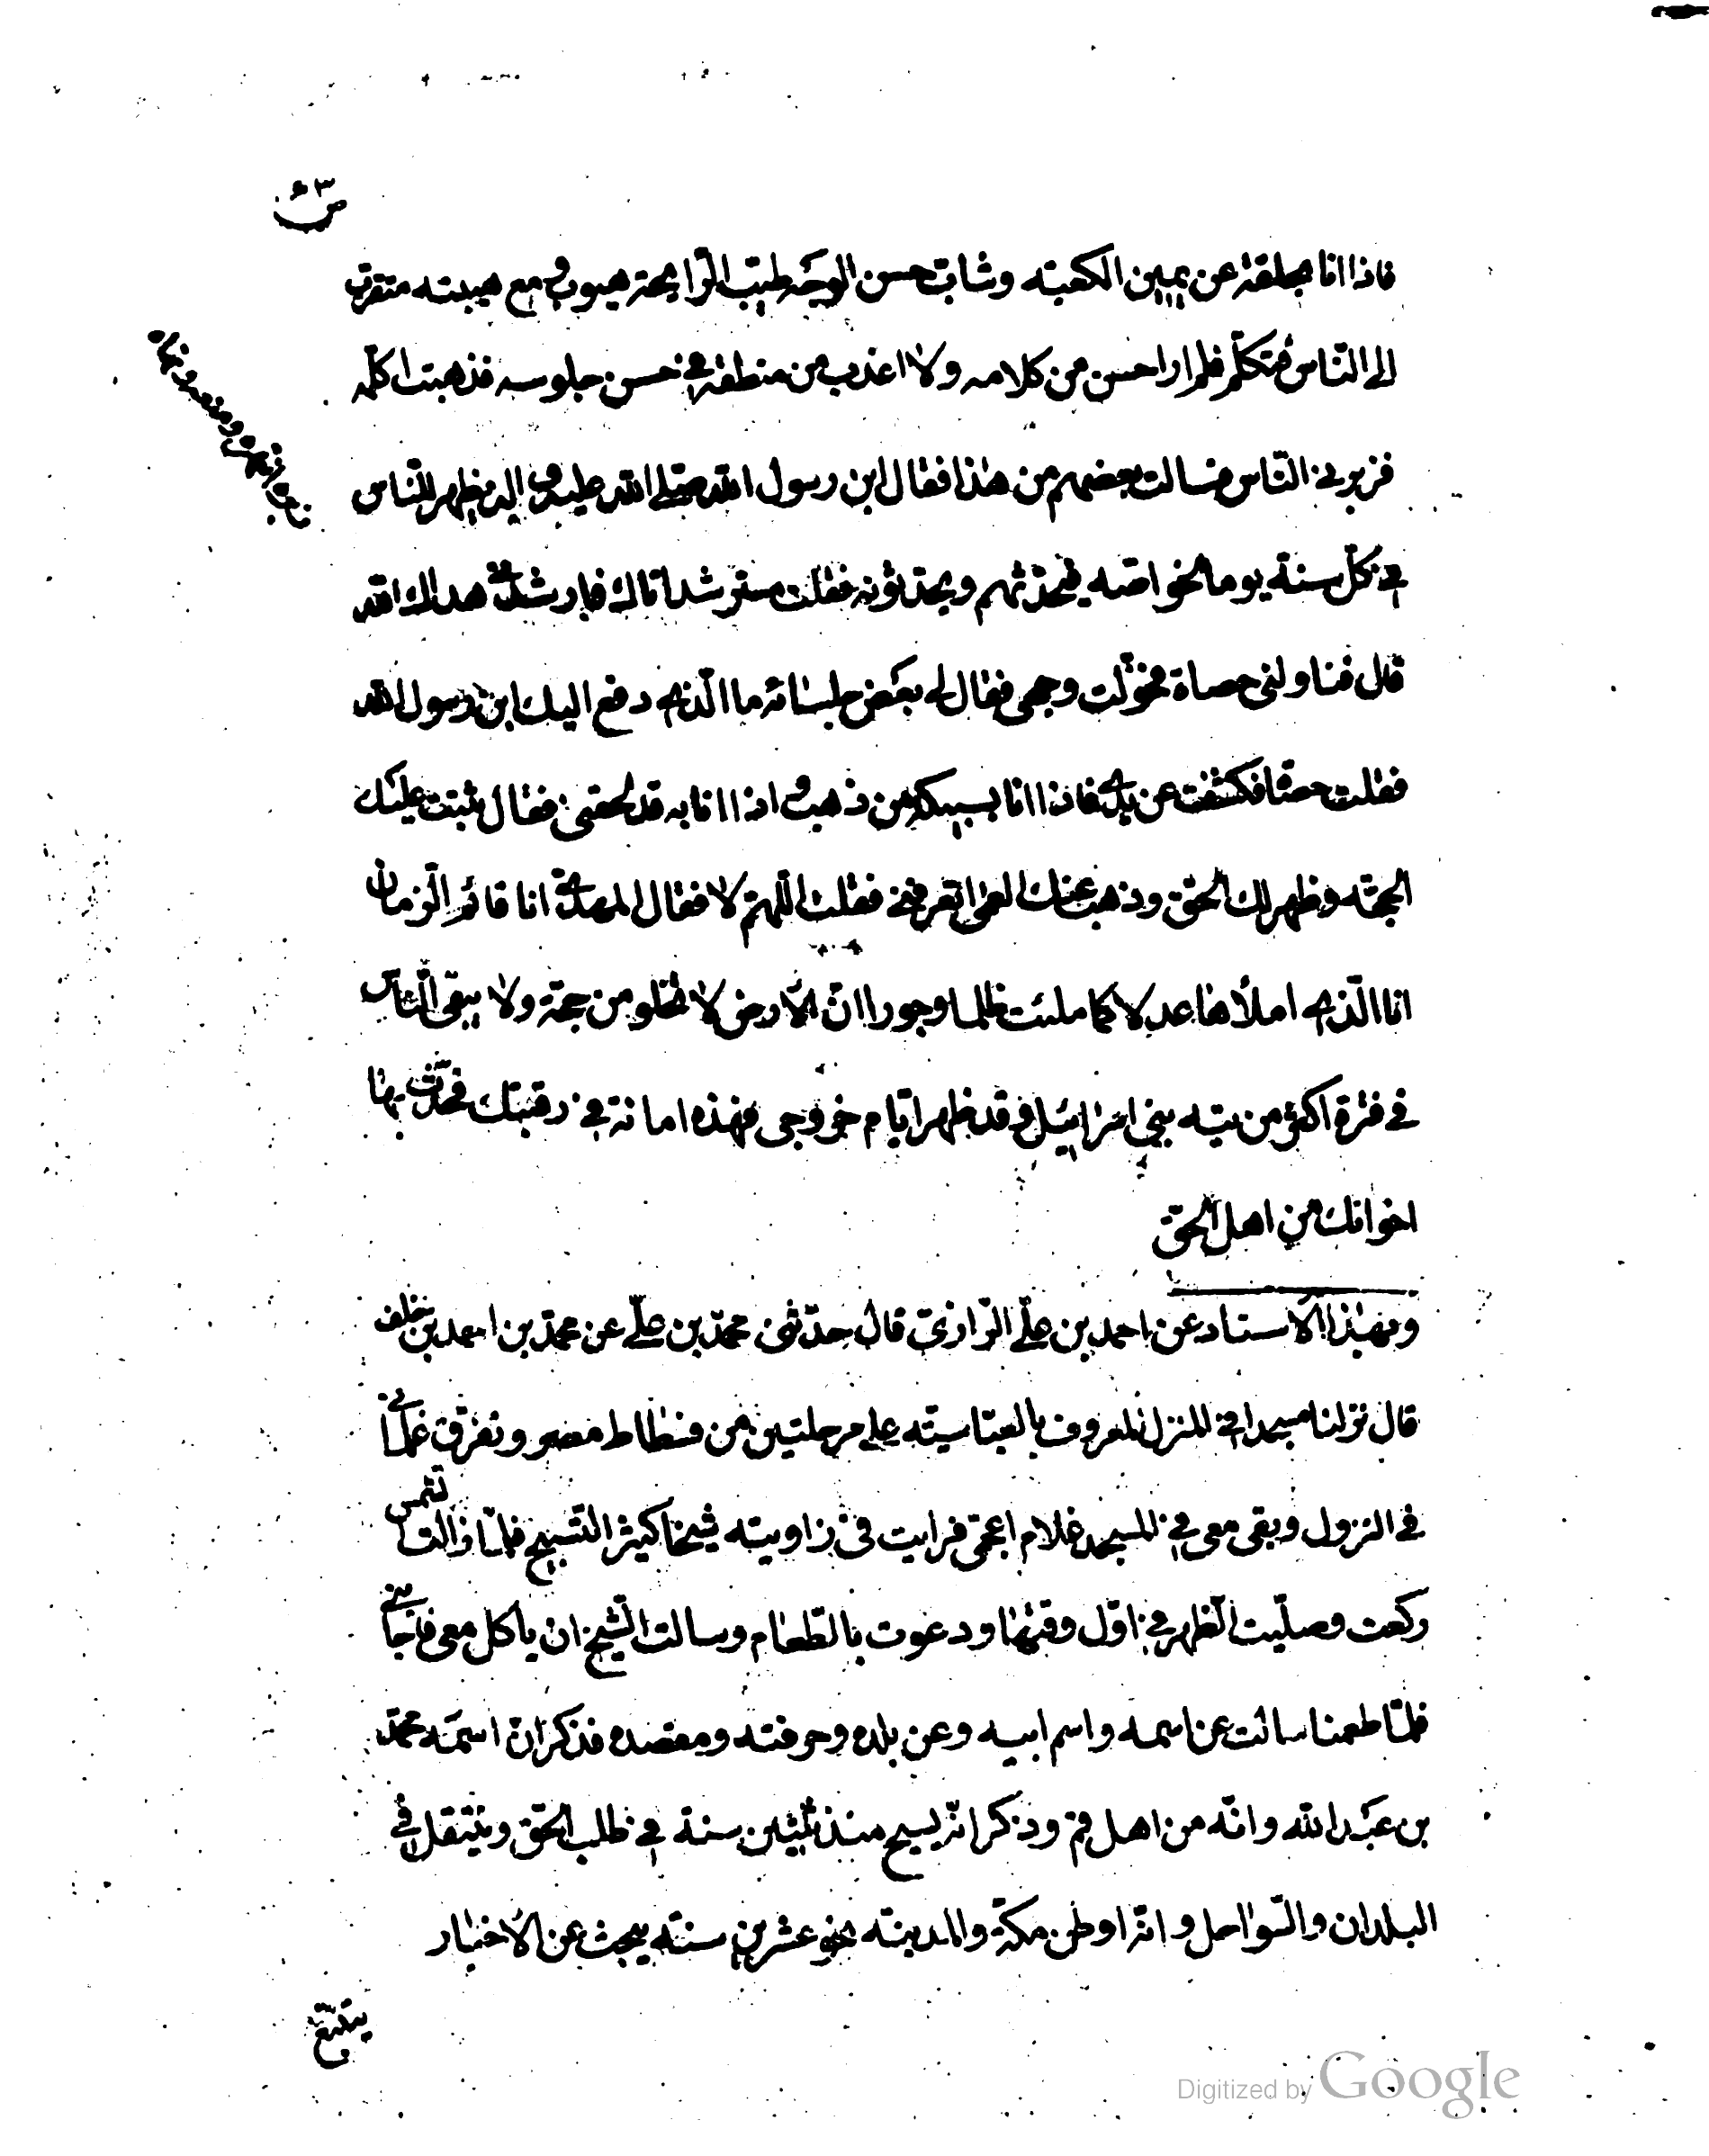 فاذا انا بحلقة عن يمين الكعبة وشاب حسن الوجه طيب الرايحة هيوب و مع هيبته متقرب
الى الناس فتكلم فلم ار احسن من كلامه ولا اعذب من منطقه في حسن جلوسه فذهبت اكلمه
فزبرني الناس فسالت بعضهم من هذا فقال ابن رسول الله صلى الله عليه و اله يظهر للناس
في كل سنة يوما لخواصه فيحدثهم ويحدثونه فقلت مسترشد اتاك فارشدني هداك الله
قال فناولني حصاة فحولت وجهي فقال لي بعض جلسائه ما الذي دفع اليك ابن رسول الله
فقلت حصاة فكشفت عن يدي فاذا انا بسبيكة من ذهب و اذا انا به قد لحقني فقال ثبتت عليك
الحجة وظهر لك الحق وذهب عنك العمى اتعرفني فقلت اللهم لا فقال المهدي انا قائم الزمان
انا الذي املأها عدلا كما ملئت ظلما وجورا ان الأرض لا تخلو من حجة ولا يبقى الناس
في فترة اكثر من تيه بني اسرائيل و قد ظهر ايام خروجي فهذه امانة في رقبتك فحدث بها
اخوانك من اهل الحق
وبهذا الاسناد عن احمد بن علي الرازي قال حدثني محمد بن علي عن محمد بن احمد بن خلف
قال نزلنا مسجدا في المنزل المعروف بالعباسية على مرحلتين من فسطاط مصر وتفرق غلماني
في النزول وبقى معي في المسجد غلام اعجمي فرايت في زاويته شيخا كثير التسبيح فلما زالت الشمس
ركعت وصليت الظهر في اول وقتها ودعوت بالطعام وسالت الشيخ ان ياكل معي فاجابني
فلما طعمنا سالت عن اسمه واسم ابيه وعن بلده وحرفته ومقصده فذكر ان اسمه محمد
بن عبد الله وانه من اهل قم وذكر انه يسيح منذ ثلثين سنة في طلب الحق وينتقل في
البلدان والسواحل وانه اوطن مكة والمدينة نحو عشرين سنة يبحث عن الأخبار
ويتتبع
Digitized by Google